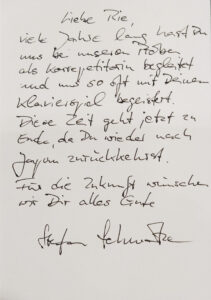 Liebe Rie,
viele Jahre lang hast Du
uns bei unseren Proben
als Korrepetitorin begleitet
und uns so oft mit Deinem
Klavierspiel begeistert.
Diese Zeit geht jetzt zu
Ende, da Du wieder nach
Japan zurückkehrst.
Für die Zukunft wünschen
wir Dir alles Gute
Stefan